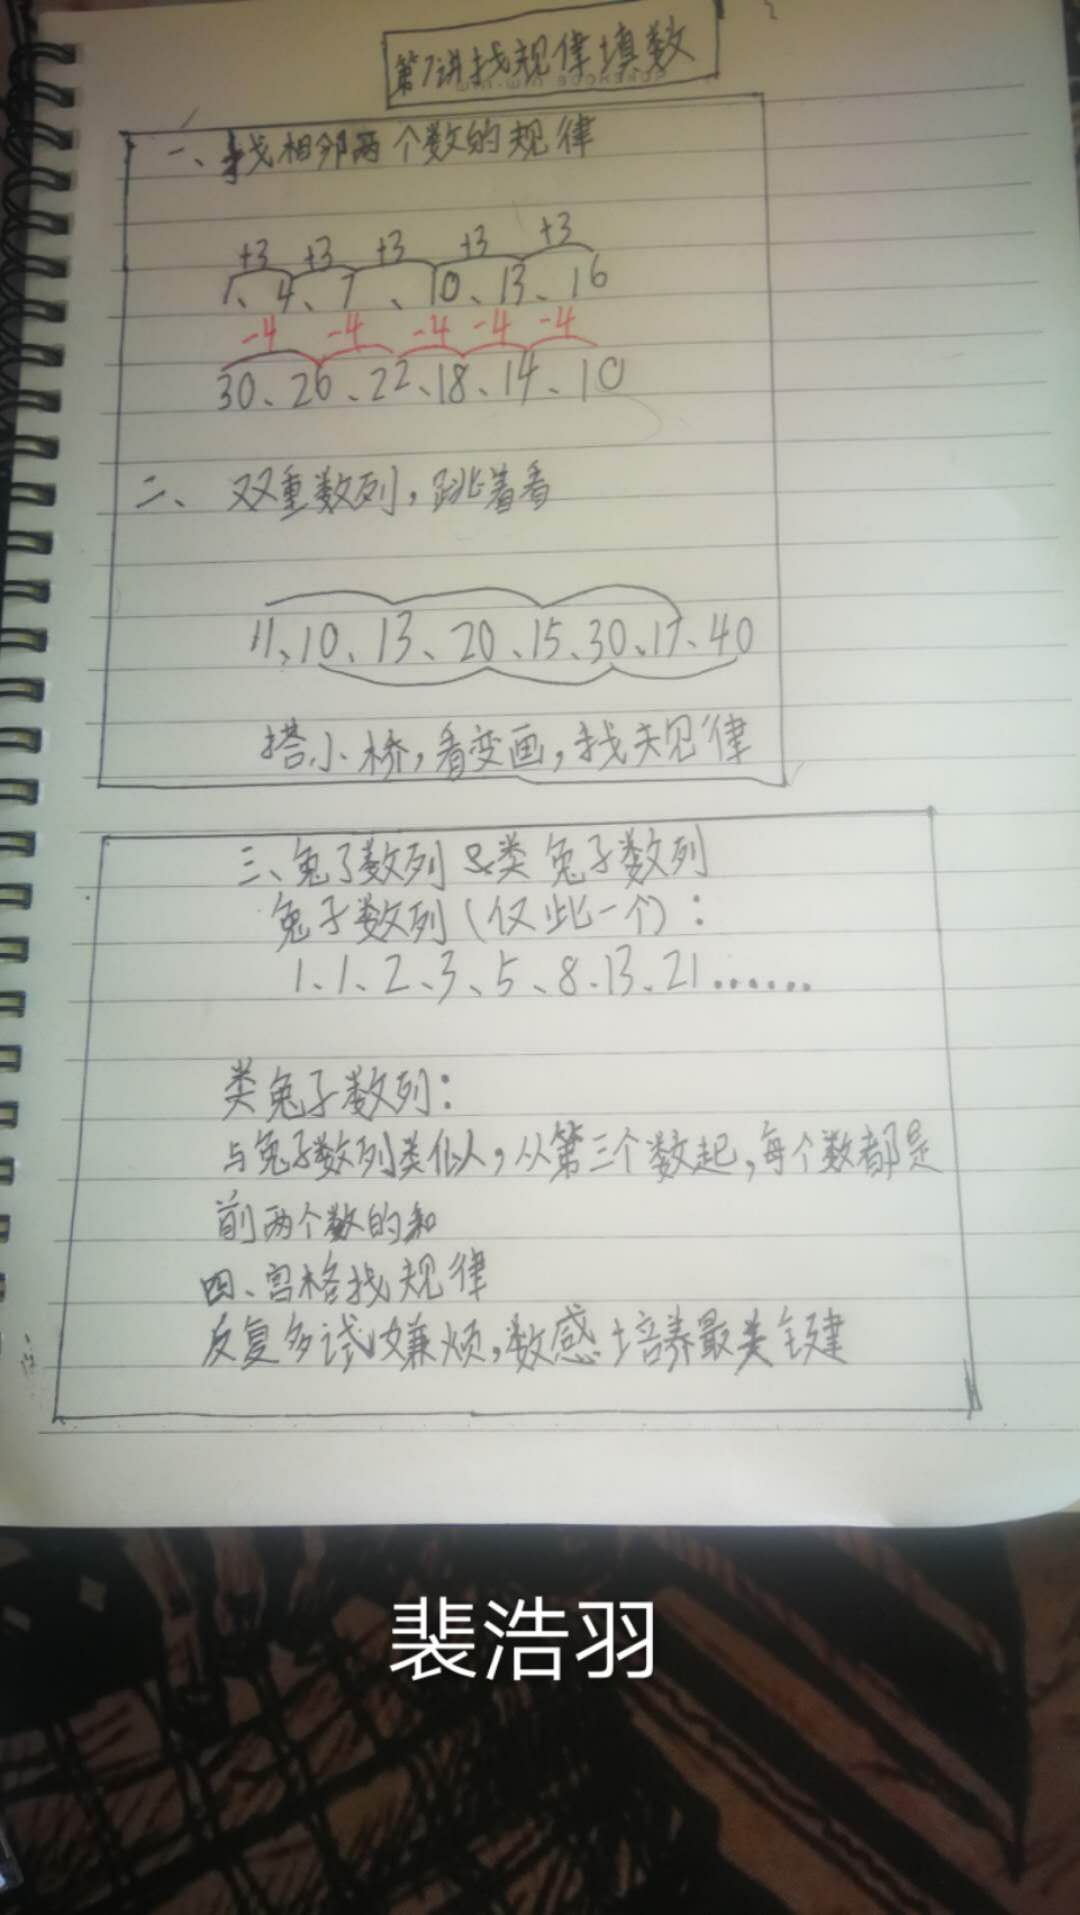 第7讲找规律填数
一、找相邻两个数的规律
+3 +3 +3 +3 +3
1、4、7、10、13、16
-4 -4 -4 -4 -4
30、26、22、18、14、10
二、双重数列，跳着看
11、10、13、20、15、30、17、40
搭小桥，看变画，找规律
三、兔子数列&类兔子数列
兔子数列（仅此一个）：
1、1、2、3、5、8、13、21……
类兔子数列：
与兔子数列类似，从第三个数起，每个数都是
前两个数的和
四、宫格找规律
反复多试嫌烦，数感培养最关键
裴浩羽